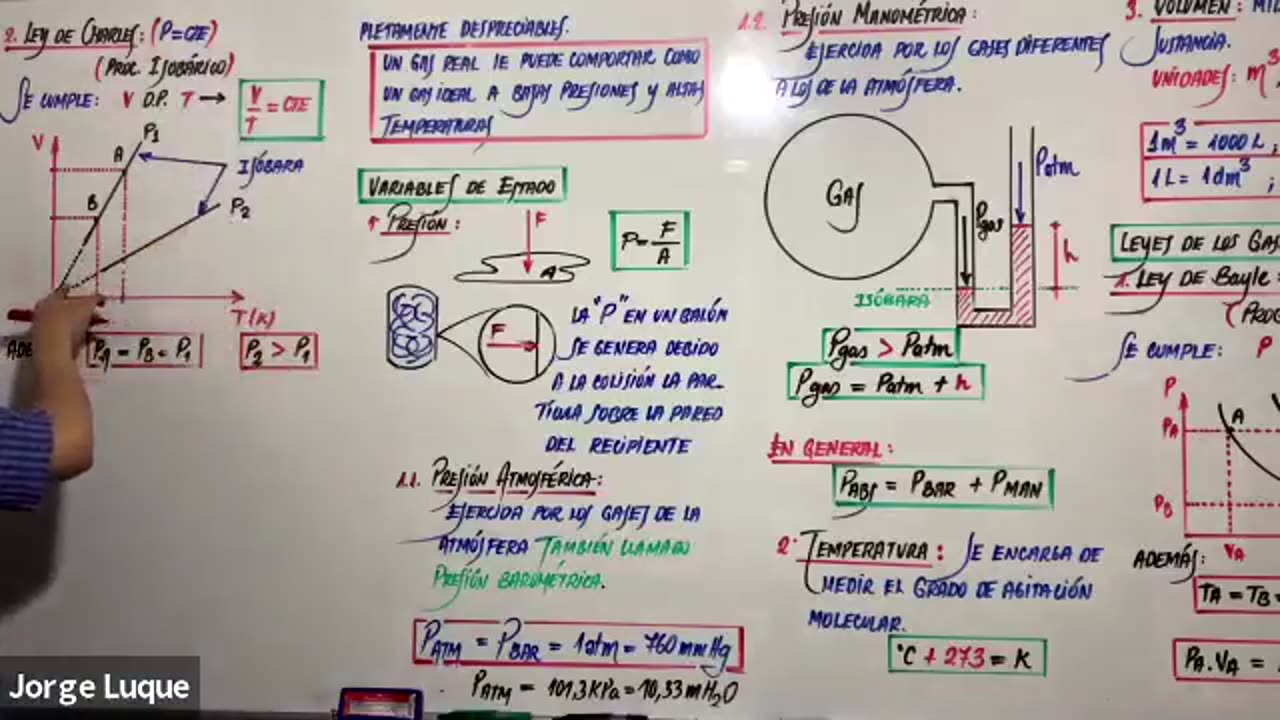 2. LEY DE CHARLES: (P=CTE)
(PROC. ISOBÁRICO)
SE CUMPLE: V D.P. T →
V/T = CTE
V
P1
A
B
P2
ISÓBARA
T(K)
PA = PB = P1
P2 > P1
PLETAMENTE DESPRECIABLES.
UN GAS REAL SE PUEDE COMPORTAR COMO
UN GAS IDEAL A BAJAS PRESIONES Y ALTAS
TEMPERATURAS
VARIABLES DE ESTADO
1. PRESIÓN:
F
A
P = F/A
F
LA "P" EN UN BALÓN
SE GENERA DEBIDO
A LA COLISIÓN LA PAR-
TÍCULA SOBRE LA PARED
DEL RECIPIENTE
1.1. PRESIÓN ATMOSFÉRICA:
EJERCIDA POR LOS GASES DE LA
ATMÓSFERA TAMBIÉN LLAMADO
PRESIÓN BAROMÉTRICA.
PATM = PBAR = 1atm = 760 mmHg
PATM = 101,3 KPa = 10,33 mH2O
1.2. PRESIÓN MANOMÉTRICA:
EJERCIDA POR LOS GASES DIFERENTES
A LOS DE LA ATMÓSFERA.
GAS
Pgas
Patm
h
ISÓBARA
Pgas > Patm
Pgas = Patm + h
EN GENERAL:
PABS = PBAR + PMAN
2. TEMPERATURA: SE ENCARGA DE
MEDIR EL GRADO DE AGITACIÓN
MOLECULAR.
°C + 273 = K
3. VOLUMEN:
SUSTANCIA.
UNIDADES: m3
1m3 = 1000 L ;
1 L = 1dm3 ;
LEYES DE LOS GAS
1. LEY DE BAYLE:
SE CUMPLE: P
P
PA
A
PB
VA
ADEMÁS:
TA = TB =
PA.VA =
Jorge Luque